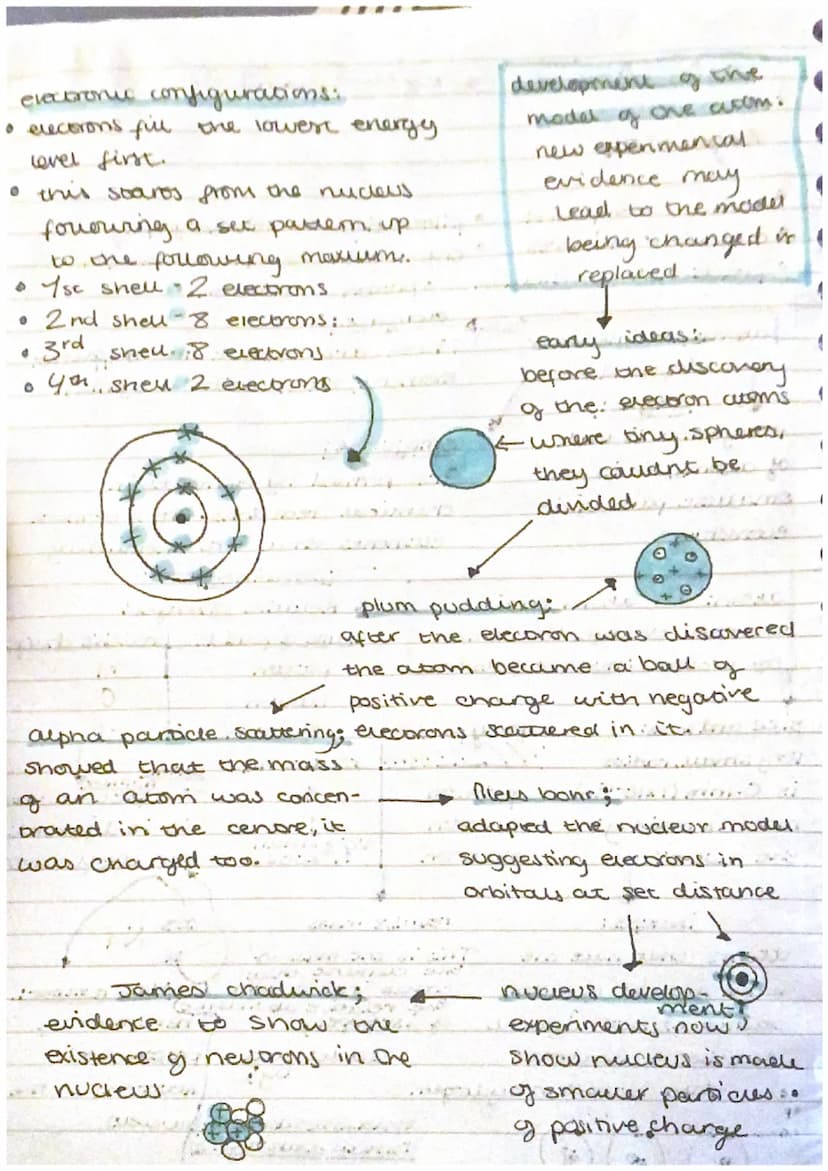 electronic configurations:
• elecorons fill the lowest energy
level first.
• this starts from the nucleus
following a set pattern up
to the following maxium.
• 1st shell - 2 electrons
• 2nd shell - 8 electrons:
• 3rd shell - 8 electrons
• 4th shell 2 electrons
development of the
model of the atom:
new experimental
evidence may
lead to the model
being changed or
replaced
early ideas:
before the discovery
of the electron atoms
where tiny spheres,
they couldnt be
divided
plum pudding:
after the electron was discovered
the atom became a ball of
positive charge with negative
elecorons scattered in it.
alpha particle scattering;
showed that the mass
of an atom was concen-
trated in the centre, it
was charged too.
Niels bohr;
adapted the nuclear model
suggesting electrons in
orbitals at set distance
nucleus develop-
ment;
experiments now
show nucleus is made
of smaller particles
of positive charge
James chadwick;
evidence to show the
existence of neutrons in the
nucleus